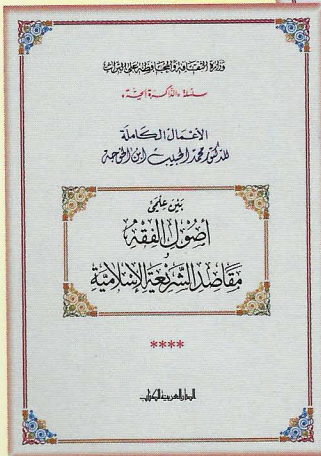 وزارة الثقافة والمحافظة على التراث
سلسلة «الذاكرة الحية»
الأعمال الكاملة
للدكتور محمد الحبيب ابن الخوجة
بين علمي
أصول الفقه
و
مقاصد الشريعة الإسلامية
****
الدار العربية للكتاب